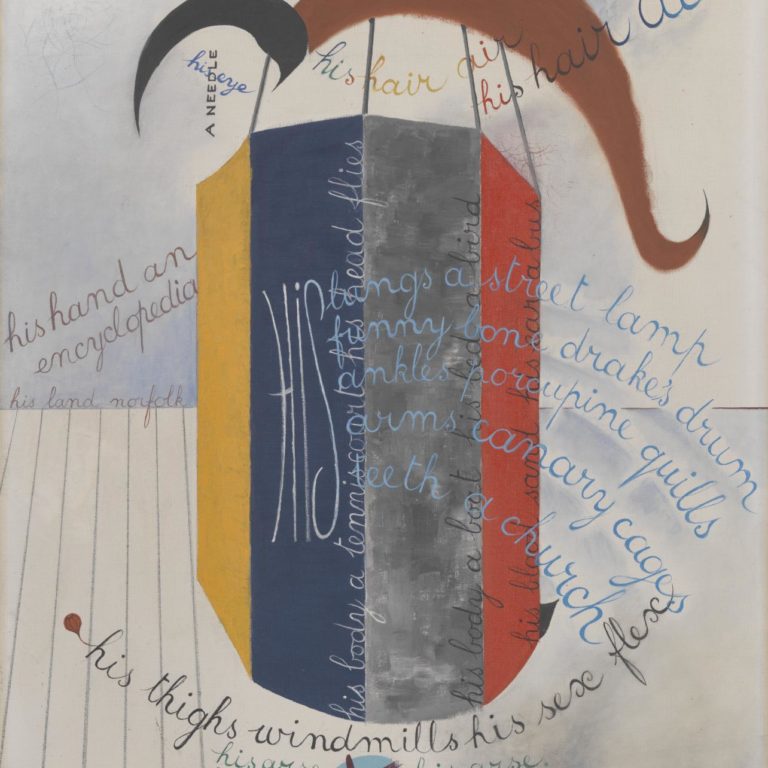 his eye
A NEEDLE
his hair air
his hair
his hand an
encyclopedia
his land norfolk
HIS
lungs a street lamp
funny bone drake's drum
ankles porcupine quills
arms canary cages
teeth a church
his body a tennis court his head flies
his body a boat his bed a bird
sand his car a bus
his thighs windmills his sex flex
his arse his arse.